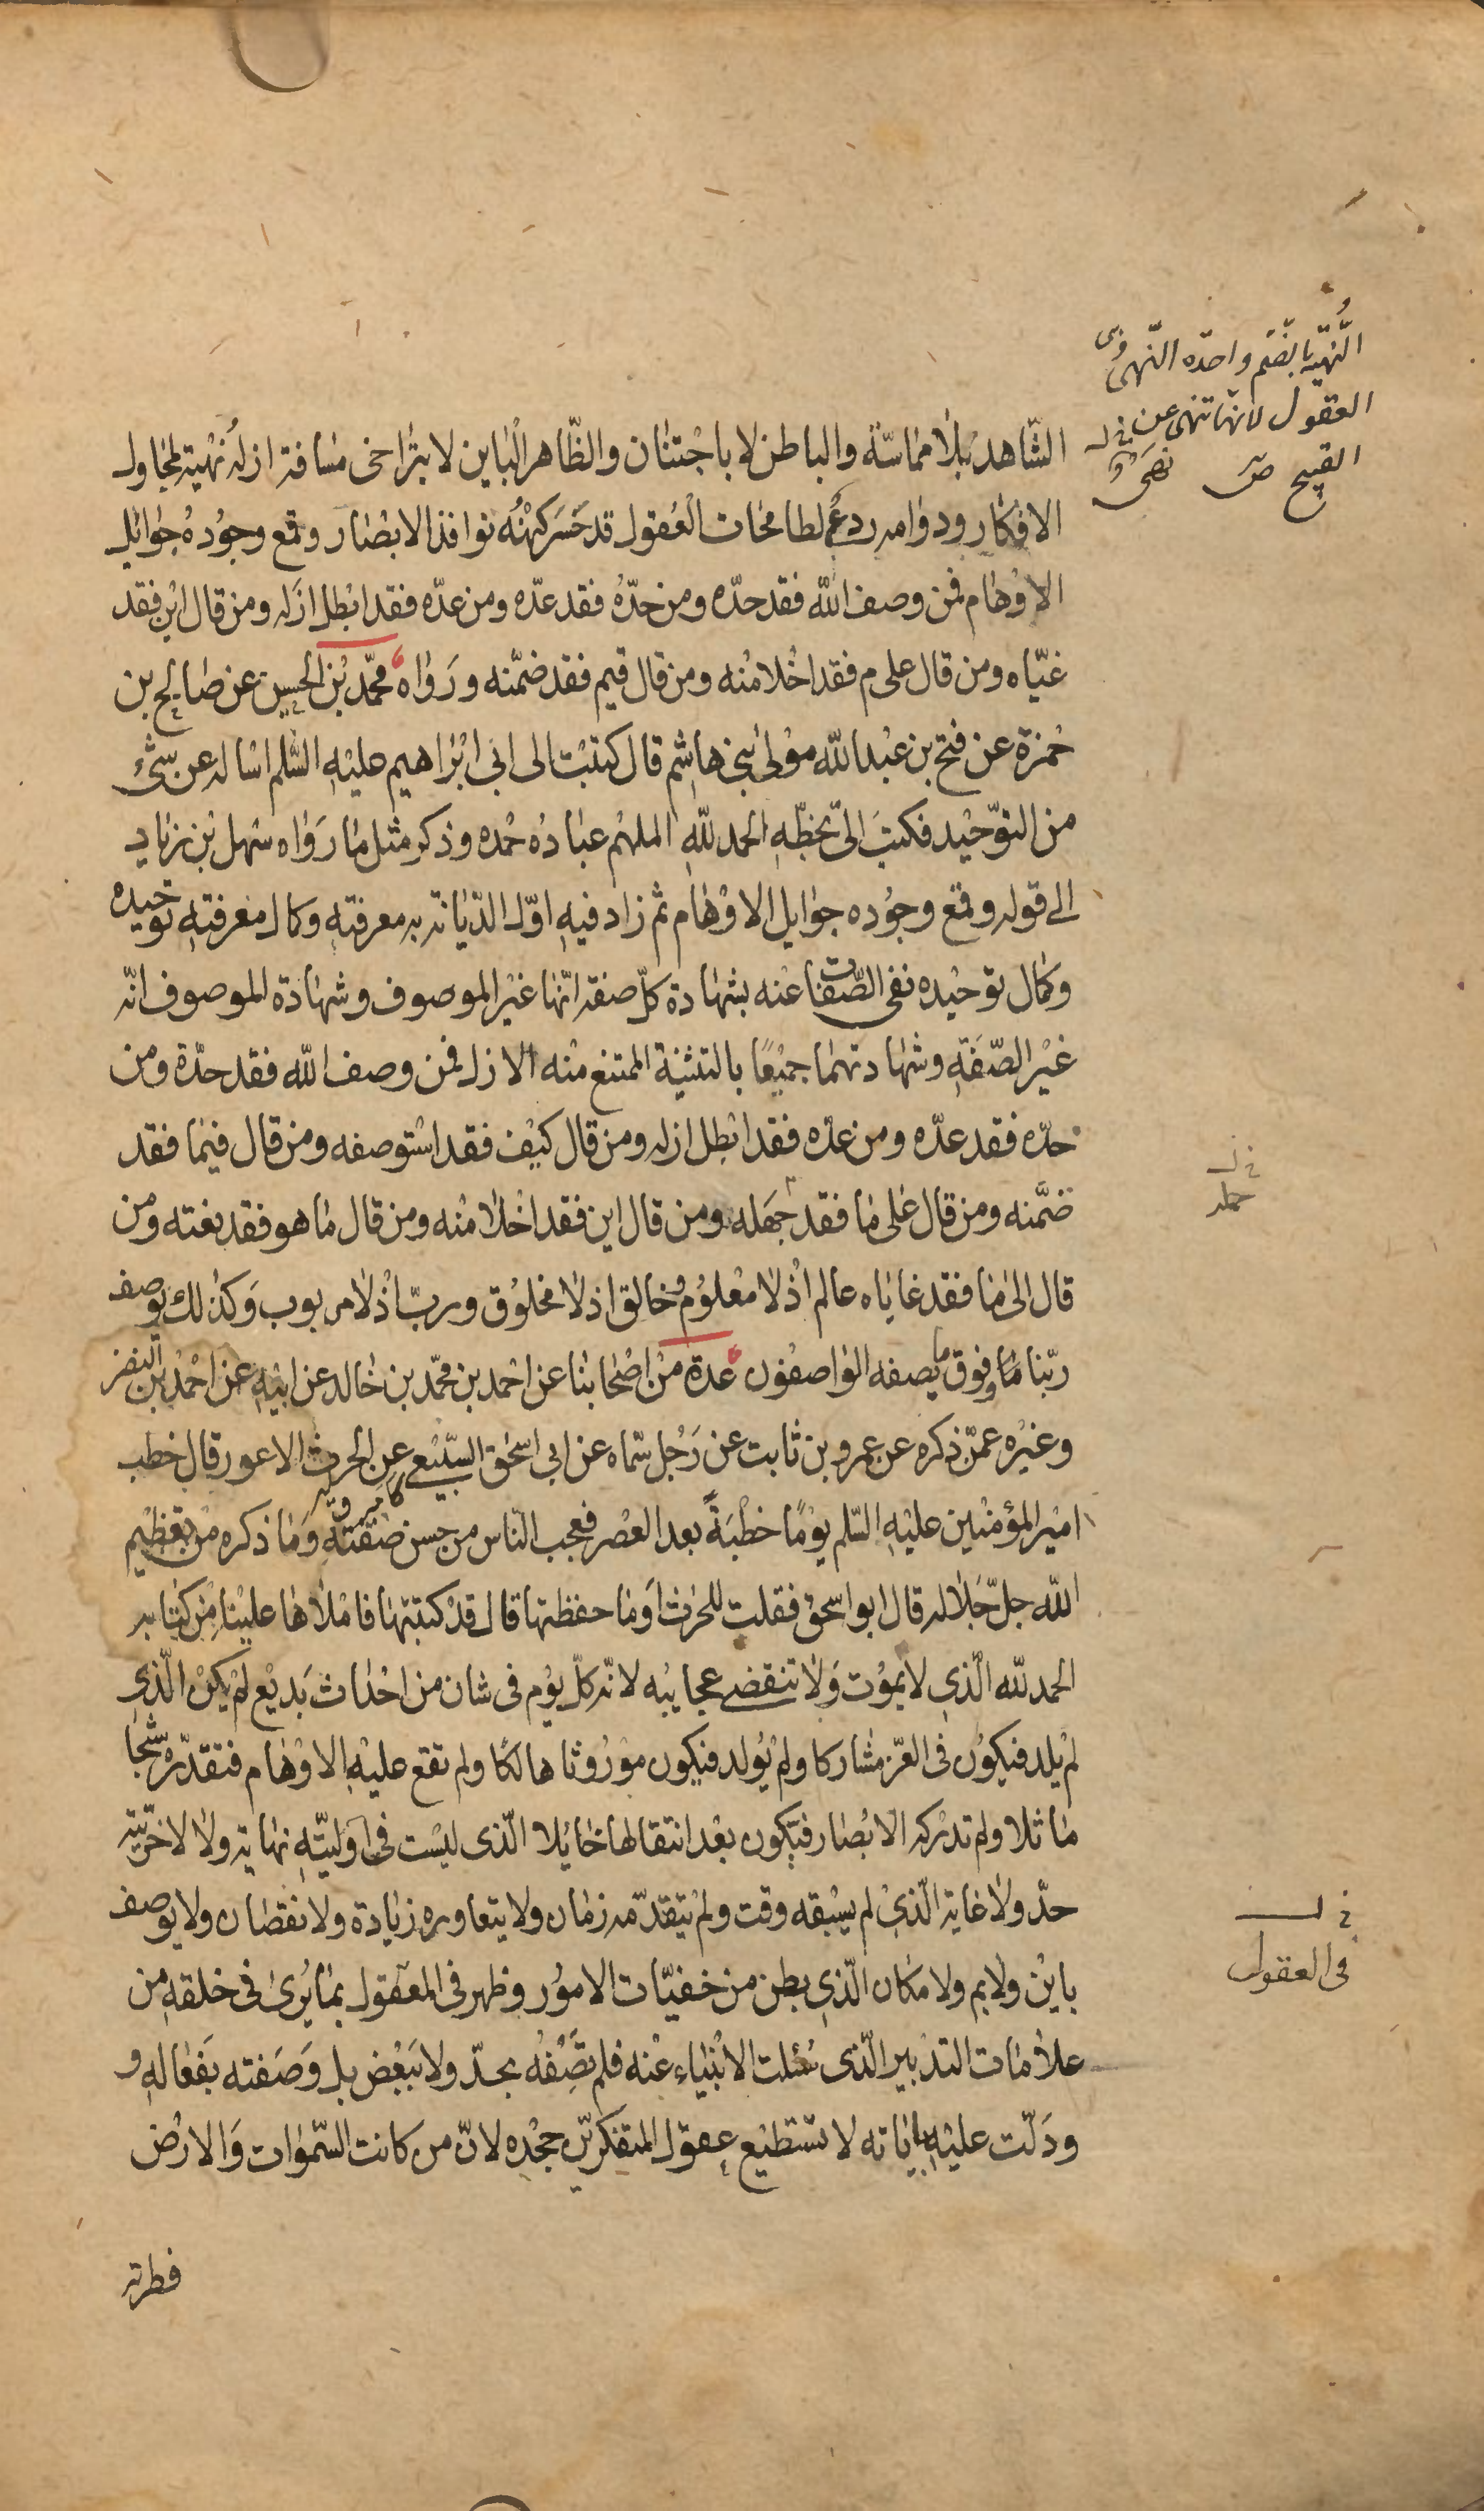 النُّهْيَة بالضّم واحدة النُّهى وهى
العقول لانّها تنهى عن
القبيح ص نهى
الشّاهد بلا مماسّة والباطن لا باجتنان والظّاهر الباين لا بتراخى مسافة ازله نهية لمجاول
الافكار ودوامه ردع لطامخات العقول قد حَسَرَ كنهُه نوافذ الابصار وقمع وجوده جوايل
الاوهام فمن وصف الله فقد حدّه ومن حدّه فقد عدّه ومن عدّه فقد ابطل ازله ومن قال اين فقد
غيّاه ومن قال على م فقد اخلا منه ومن قال فيم فقد ضمّنه ورواه محمّد بن الحسين عن صالح بن
حمزة عن فتح بن عبدالله مولى بنى هاشم قال كتبت الى ابى ابراهيم عليه السّلم اساله عن شئ
من التوحيد فكتبَ الىّ بخطّه الحمد لله الملهم عباده حمده وذكر مثل ما رواه سهل بن زياد
الى قوله وقمع وجوده جوايل الاوهام ثم زاد فيه اوّل الدّيانة به معرفته وكمال معرفته توحيده
وكمال توحيده نفى الصّفات عنه بشهادة كلّ صفة انّها غير الموصوف وشهادة الموصوف انّه
غير الصّفة وشهادتهما جميعًا بالتثنية الممتنع منه الازل فمن وصف الله فقد حدّه ومن
حدّه فقد عدّه ومن عدّه فقد ابطل ازله ومن قال كيف فقد استوصفه ومن قال فيما فقد
خ ل
حمله
ضمّنه ومن قال على ما فقد جهله ومن قال اين فقد اخلا منه ومن قال ما هو فقد نعته ومن
قال الى ما فقد غاياه عالم اذ لا معلوم وخالق اذ لا مخلوق وربّ اذ لا مربوب وكذلك يوصف
ربّنا وفوق ما يصفه الواصفون عدة من اصحابنا عن احمد بن محمّد بن خالد عن ابيه عن احمد بن النضر
وغيره عمّن ذكره عن عمرو بن ثابت عن رَجُل سمّاه عن ابى اسحق السّبيعى عن الحرث الاعور قال خطب
امير المؤمنين عليه السّلم يومًا خطبَةً بعد العصر فعجب الناس من حسن صفته وما ذكره من تعظيم
الله جلّ جلاله قال ابو اسحق فقلت للحرث اَوَما حفظتها قال قد كتبتها فاملاها علينا من كتابه
الحمد لله الّذى لا يموت ولا تنقضى عجايبه لانّه كلّ يوم فى شان من احداث بَديع لم يكن الّذى
لم يلد فيكون فى العزّ مشاركا ولم يُولد فيكون موروثا هالكًا ولم تقع عليه الاوهام فتقدّره شبحا
ماثلا ولم تدركه الابصار فيكون بعد انتقالها حايلا الّذى ليست فى اوليّته نهاية ولا لاخرّيته
حدّ ولا غاية الّذى لم يسبقه وقت ولم يتقدّمه زمان ولا يتعاوره زيادة ولا نقصان ولا يوصف
خ ل
فى العقول
باين ولا بم ولا مكان الّذى بطن من خفيّات الامور وظهر فى العقول بما يُرى فى خلقه من
علامات التدبير الّذى سُئلت الانبياء عنه فلم تصِفْه بحدّ ولا ببعض بل وصَفته بفعاله و
ودَلّت عليه باياته لا تستطيع عقول المتفكرين جحده لانّ من كانت السّموات والارض
فطرته